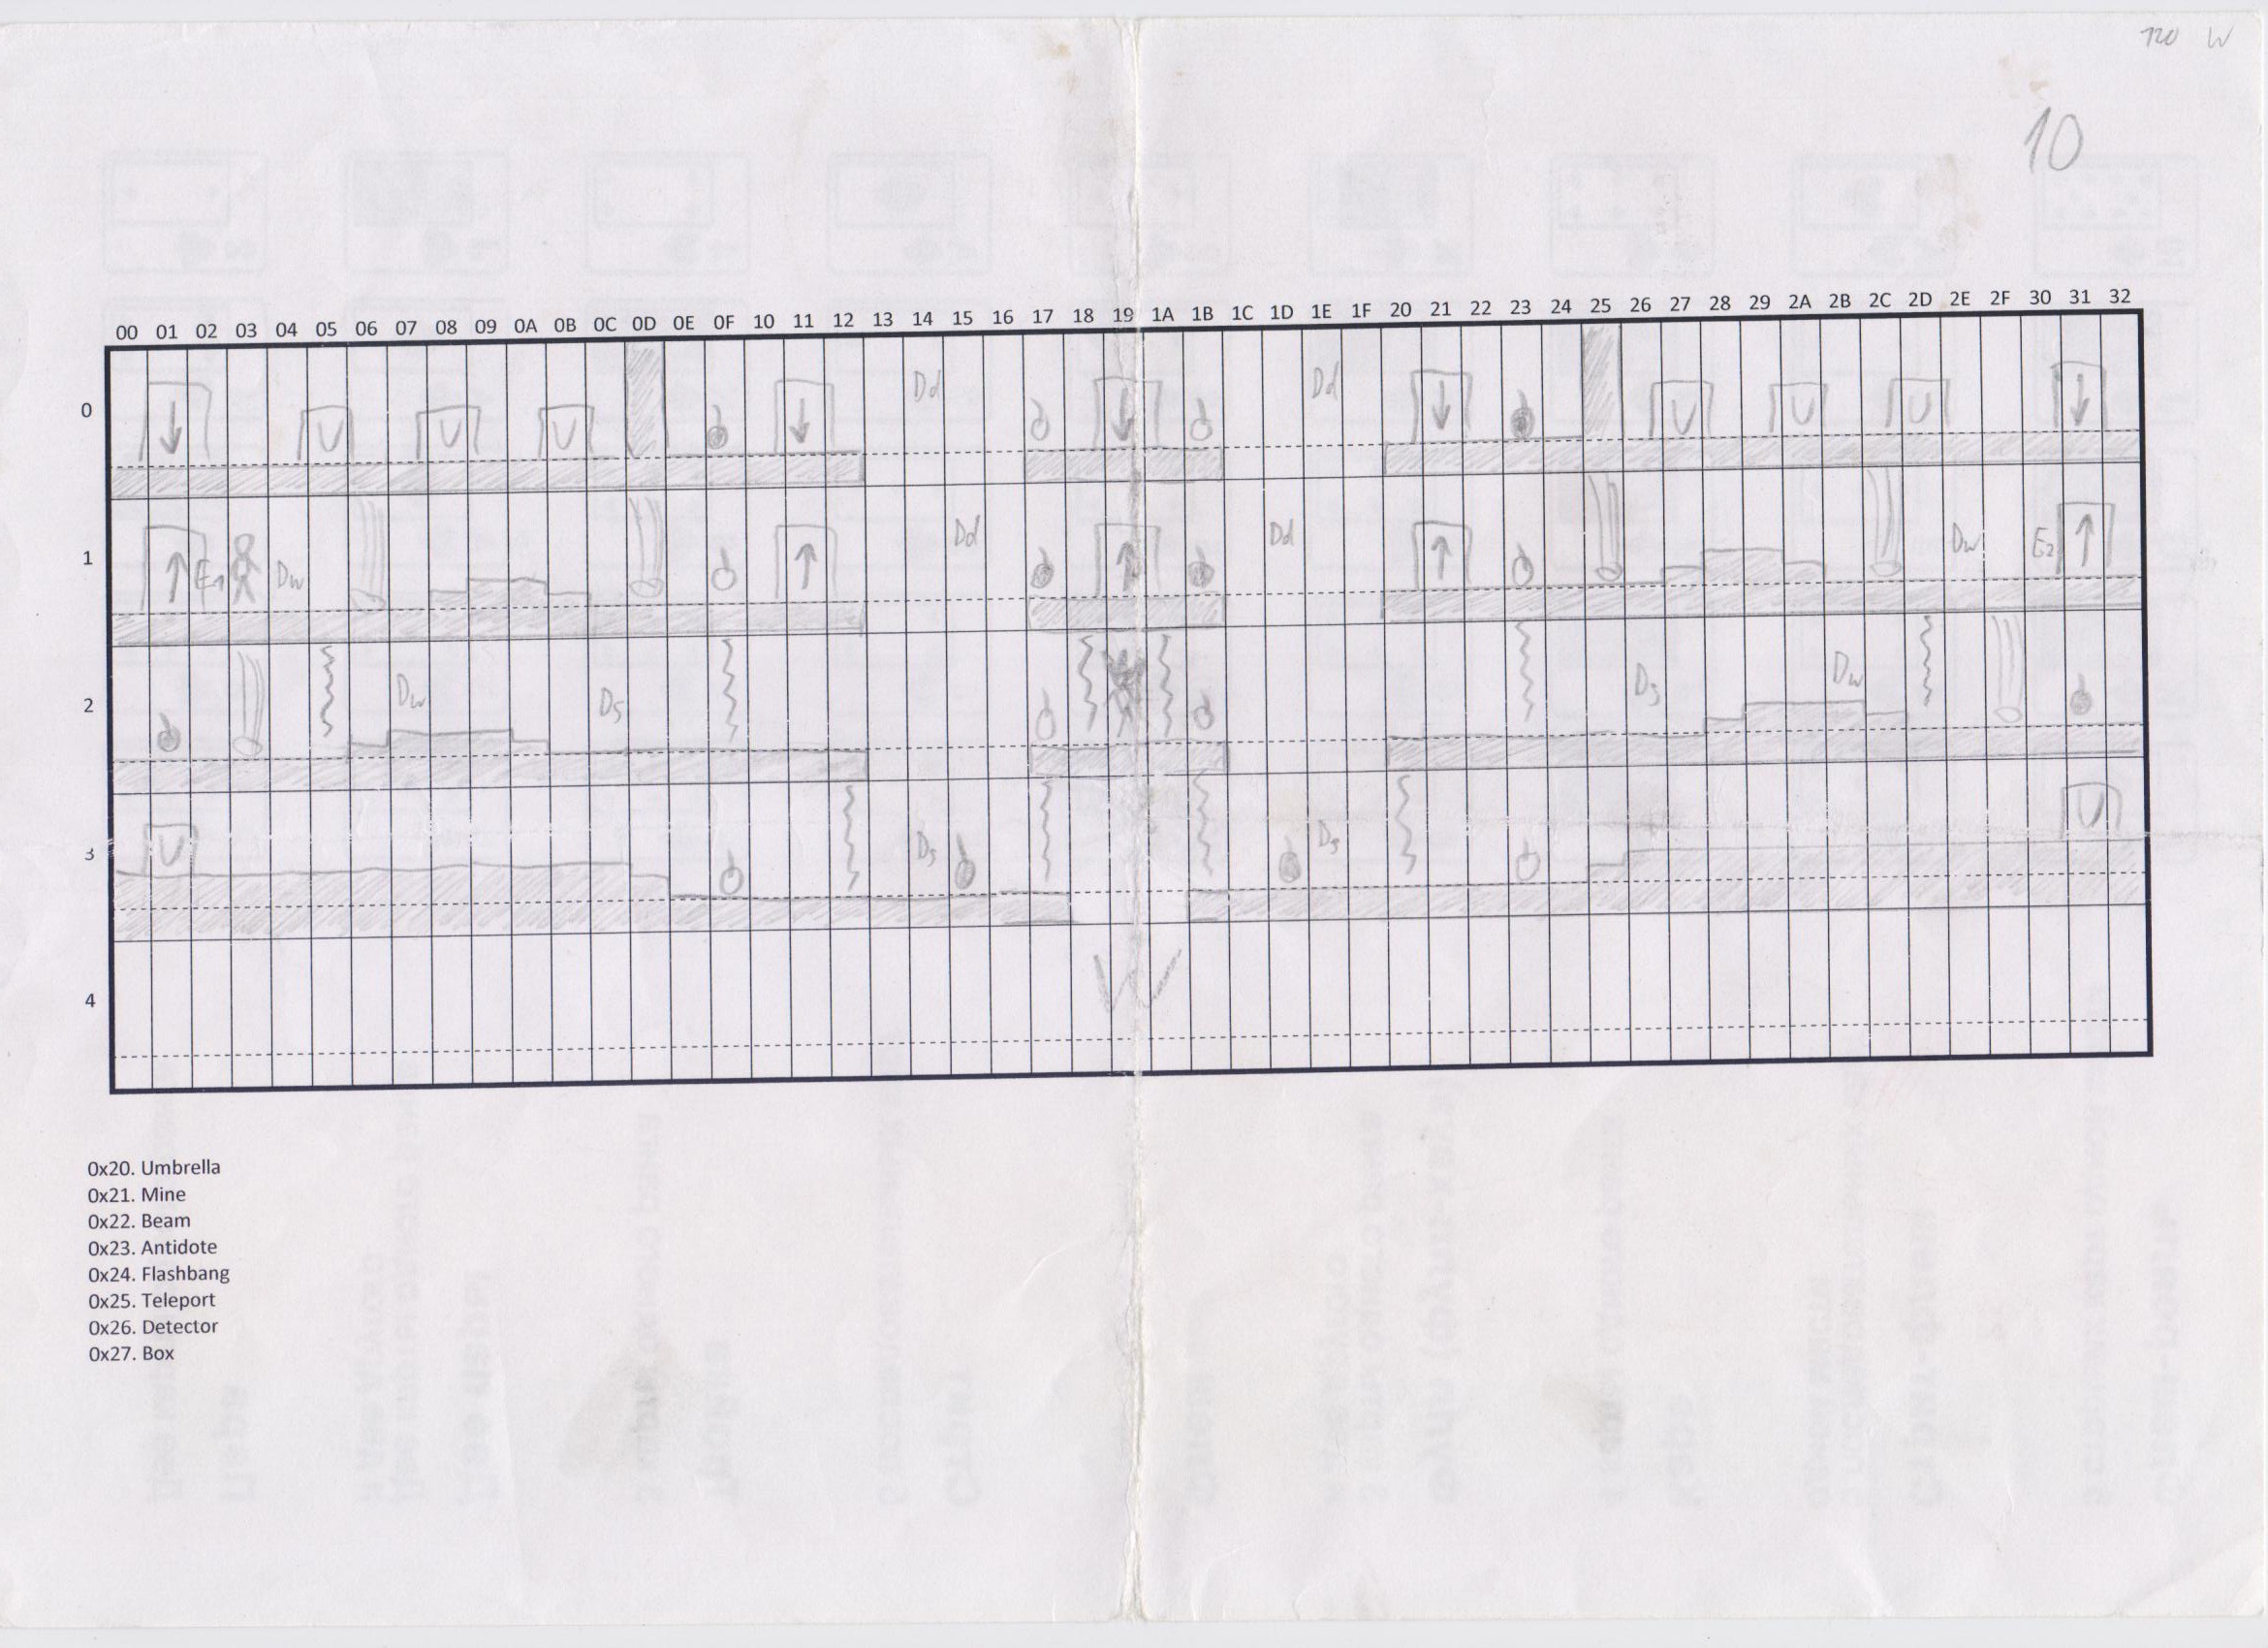 720 W
10
00 01 02 03 04 05 06 07 08 09 0A 0B 0C 0D 0E 0F 10 11 12 13 14 15 16 17 18 19 1A 1B 1C 1D 1E 1F 20 21 22 23 24 25 26 27 28 29 2A 2B 2C 2D 2E 2F 30 31 32
0 U U U Dd Dd U U U
1 E1 Dw Dd Dd Dw E2
2 Dw Ds Ds Dw
3 U Ds Ds U
4 W
0x20. Umbrella
0x21. Mine
0x22. Beam
0x23. Antidote
0x24. Flashbang
0x25. Teleport
0x26. Detector
0x27. Box